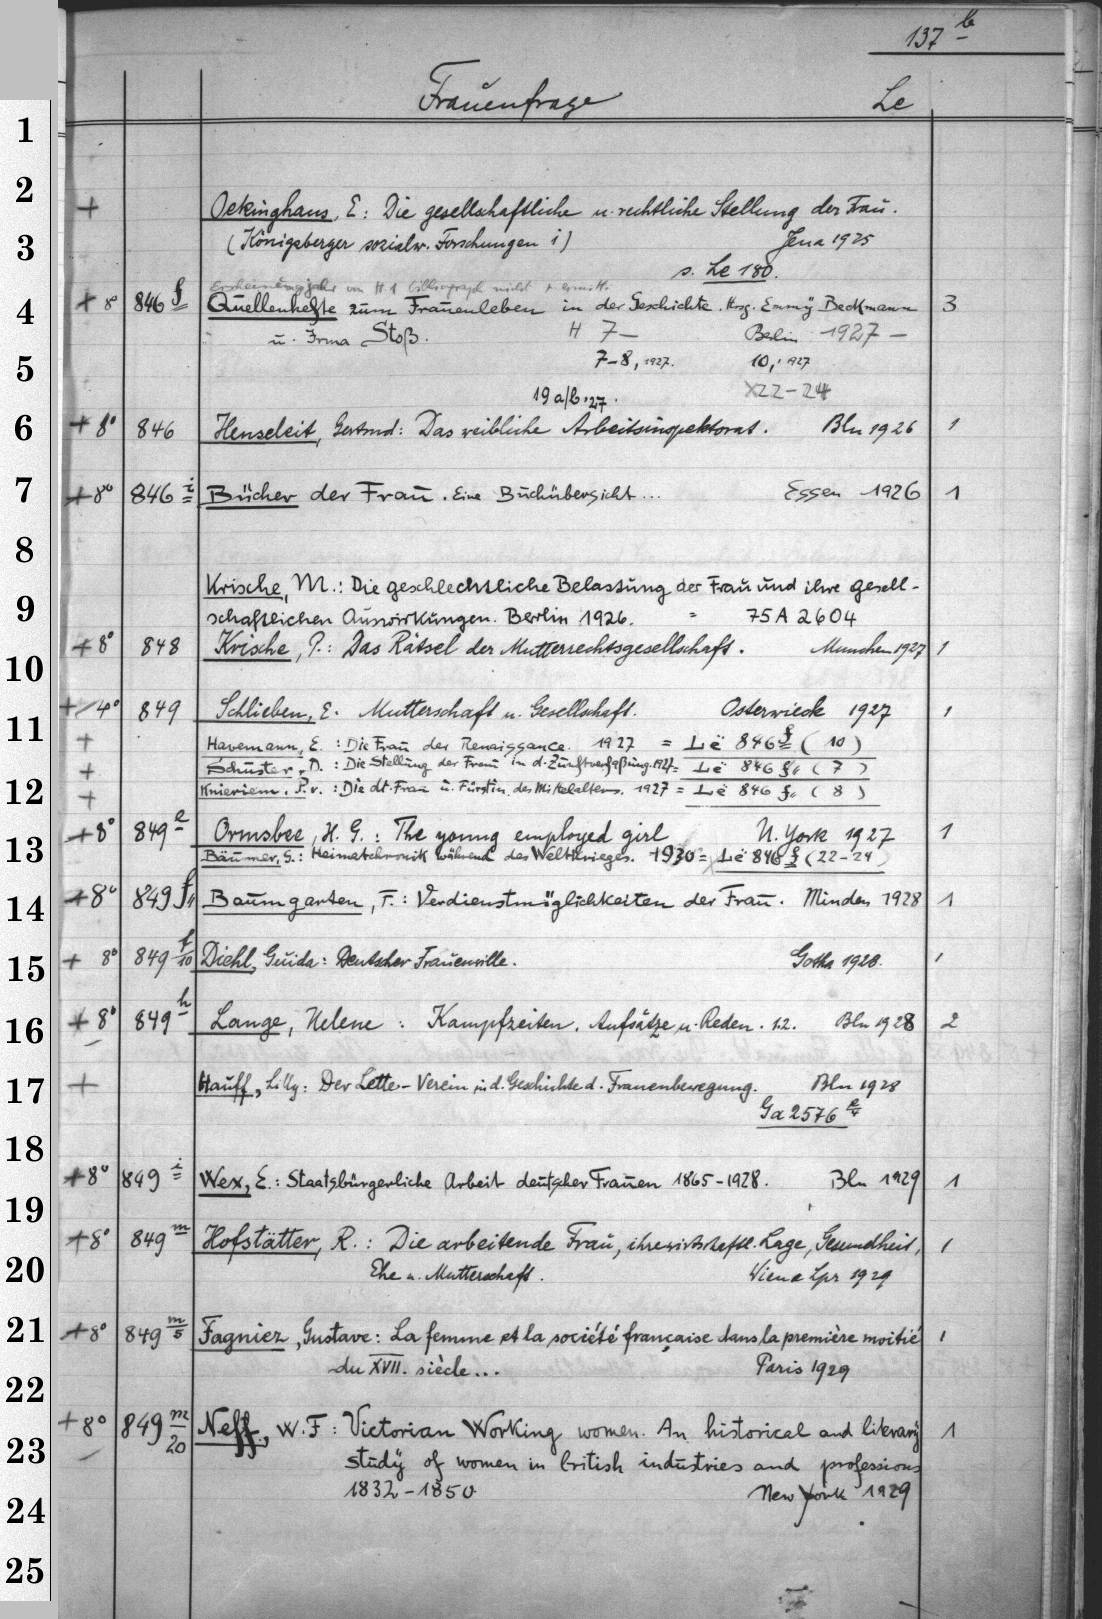 137 b
Frauenfrage Le
1
2
+ Oekinghaus, E: Die gesellschaftliche u. rechtliche Stellung der Frau.
3 (Königsberger sozialw. Forschungen 1) Jena 1925
s. Le 180.
Erscheinungsjahr von H. 1 nicht
4 + 8° 846 f Quellenhefte zum Frauenleben in der Geschichte. Hrsg. Emmy Beckmann 3
u. Irma Stoß. H 7— Berlin 1927—
5 7-8, 1927. 10, 1927
19 a/b, 27. X22-24
6 + 8° 846 Henseleit, Gertrud: Das weibliche Arbeitsinspektorat. Bln 1926 1
7 + 8° 846 i Bücher der Frau. Eine Buchübersicht... Essen 1926 1
8
Krische, M.: Die geschlechtliche Belastung der Frau und ihre gesell-
9 schaftlichen Auswirkungen. Berlin 1926. = 75 A 2604
10 + 8° 848 Krische, P.: Das Rätsel der Mutterrechtsgesellschaft. München 1927 1
+ 4° 849 Schlieben, E. Mutterschaft u. Gesellschaft. Osterwieck 1927 1
11 + Havemann, E.: Die Frau der Renaissance. 1927 = Lë 846 f (10)
+ Schuster, D.: Die Stellung der Frau in d. Zunftverfaßung. 1927 = Lë 846 f, (7)
12 + Knieriem, P. v.: Die dt. Frau u. Fürstin des Mittelalters. 1927 = Lë 846 f, (8)
+ 8° 849 e Ormsbee, H. G.: The young employed girl N. York 1927 1
13 Bäumer, G.: Heimatchronik während des Weltkrieges. 1930 = Lë 846 f (22-24)
14 + 8° 849 f, Baumgarten, F.: Verdienstmöglichkeiten der Frau. Minden 1928 1
15 + 8° 849 f/10 Diehl, Guida: Deutscher Frauenwille. Gotha 1928. 1
16 + 8° 849 h Lange, Helene: Kampfzeiten. Aufsätze u. Reden. 1.2. Bln 1928 2
17 + Hauff, Lilly: Der Lette-Verein in d. Geschichte d. Frauenbewegung. Bln 1928
Ga 2576
18
+ 8° 849 i Wex, E.: Staatsbürgerliche Arbeit deutscher Frauen 1865-1928. Bln 1929 1
19
+ 8° 849 m Hofstätter, R.: Die arbeitende Frau, ihre wirtschaftl. Lage, Gesundheit, 1
20 Ehe u. Mutterschaft. Wien u Lpz 1929
21 + 8° 849 m/5 Fagniez, Gustave: La femme et la société française dans la première moitié 1
du XVII. siècle... Paris 1929
22
+ 8° 849 m/20 Neff, W. F: Victorian Working women. An historical and literary 1
23 study of women in british industries and professions
1832-1850 New York 1929
24
25